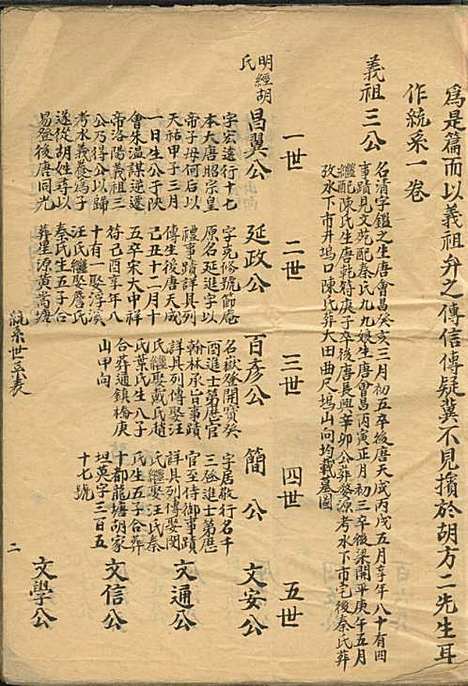 為是篇而以義祖弁之傳信傳疑冀不見擯於胡方二先生耳
作統系一卷
義祖三公
名清字鑑之生唐會昌癸亥三月初五卒後唐天成丙戌五月享年八十有四
事蹟見文苑配秦氏九九娘生唐會昌丙寅正月初三卒後梁開平庚午五月
繼配陳氏生唐乾符庚子卒後唐長興辛卯公葬婺源考水下市宅後秦氏葬
考水下市井塢口陳氏葬大田曲尺塢山向均載墓圖
一世
二世
三世
四世
五世
明經胡氏
昌翼公
字宏遠行十七
本大唐昭宗皇
帝子母何后以
天祐甲子三月
一日生公于陝
會朱溫謀逆遂
帝洛陽義祖三
公乃得公以歸
考水義養為子
遂從胡姓尋以
易登後唐同光
延政公
字克脩號節庵
原名延進字以
禮事蹟詳具列
傳生後唐天成
己丑十二月十
五卒宋大中祥
符己酉享年八
十有一娶淳溪
汪氏繼娶詹氏
秦氏生五子合
葬星源黃蒿塘
百彥公
名嶽登開寶癸
酉進士第歷官
翰林承旨事蹟
詳具列傳娶汪
氏繼娶戴氏趙
氏葉氏生八子
合葬通鎮橋庚
山甲向
簡公
字居敬行名千
三登進士第歷
官至侍御事蹟
詳具列傳娶閔
氏繼娶汪氏秦
氏生五子合葬
十都龍塘胡家
坦英字三百五
十七號
文安公
文通公
文信公
文學公
統系世系表
二